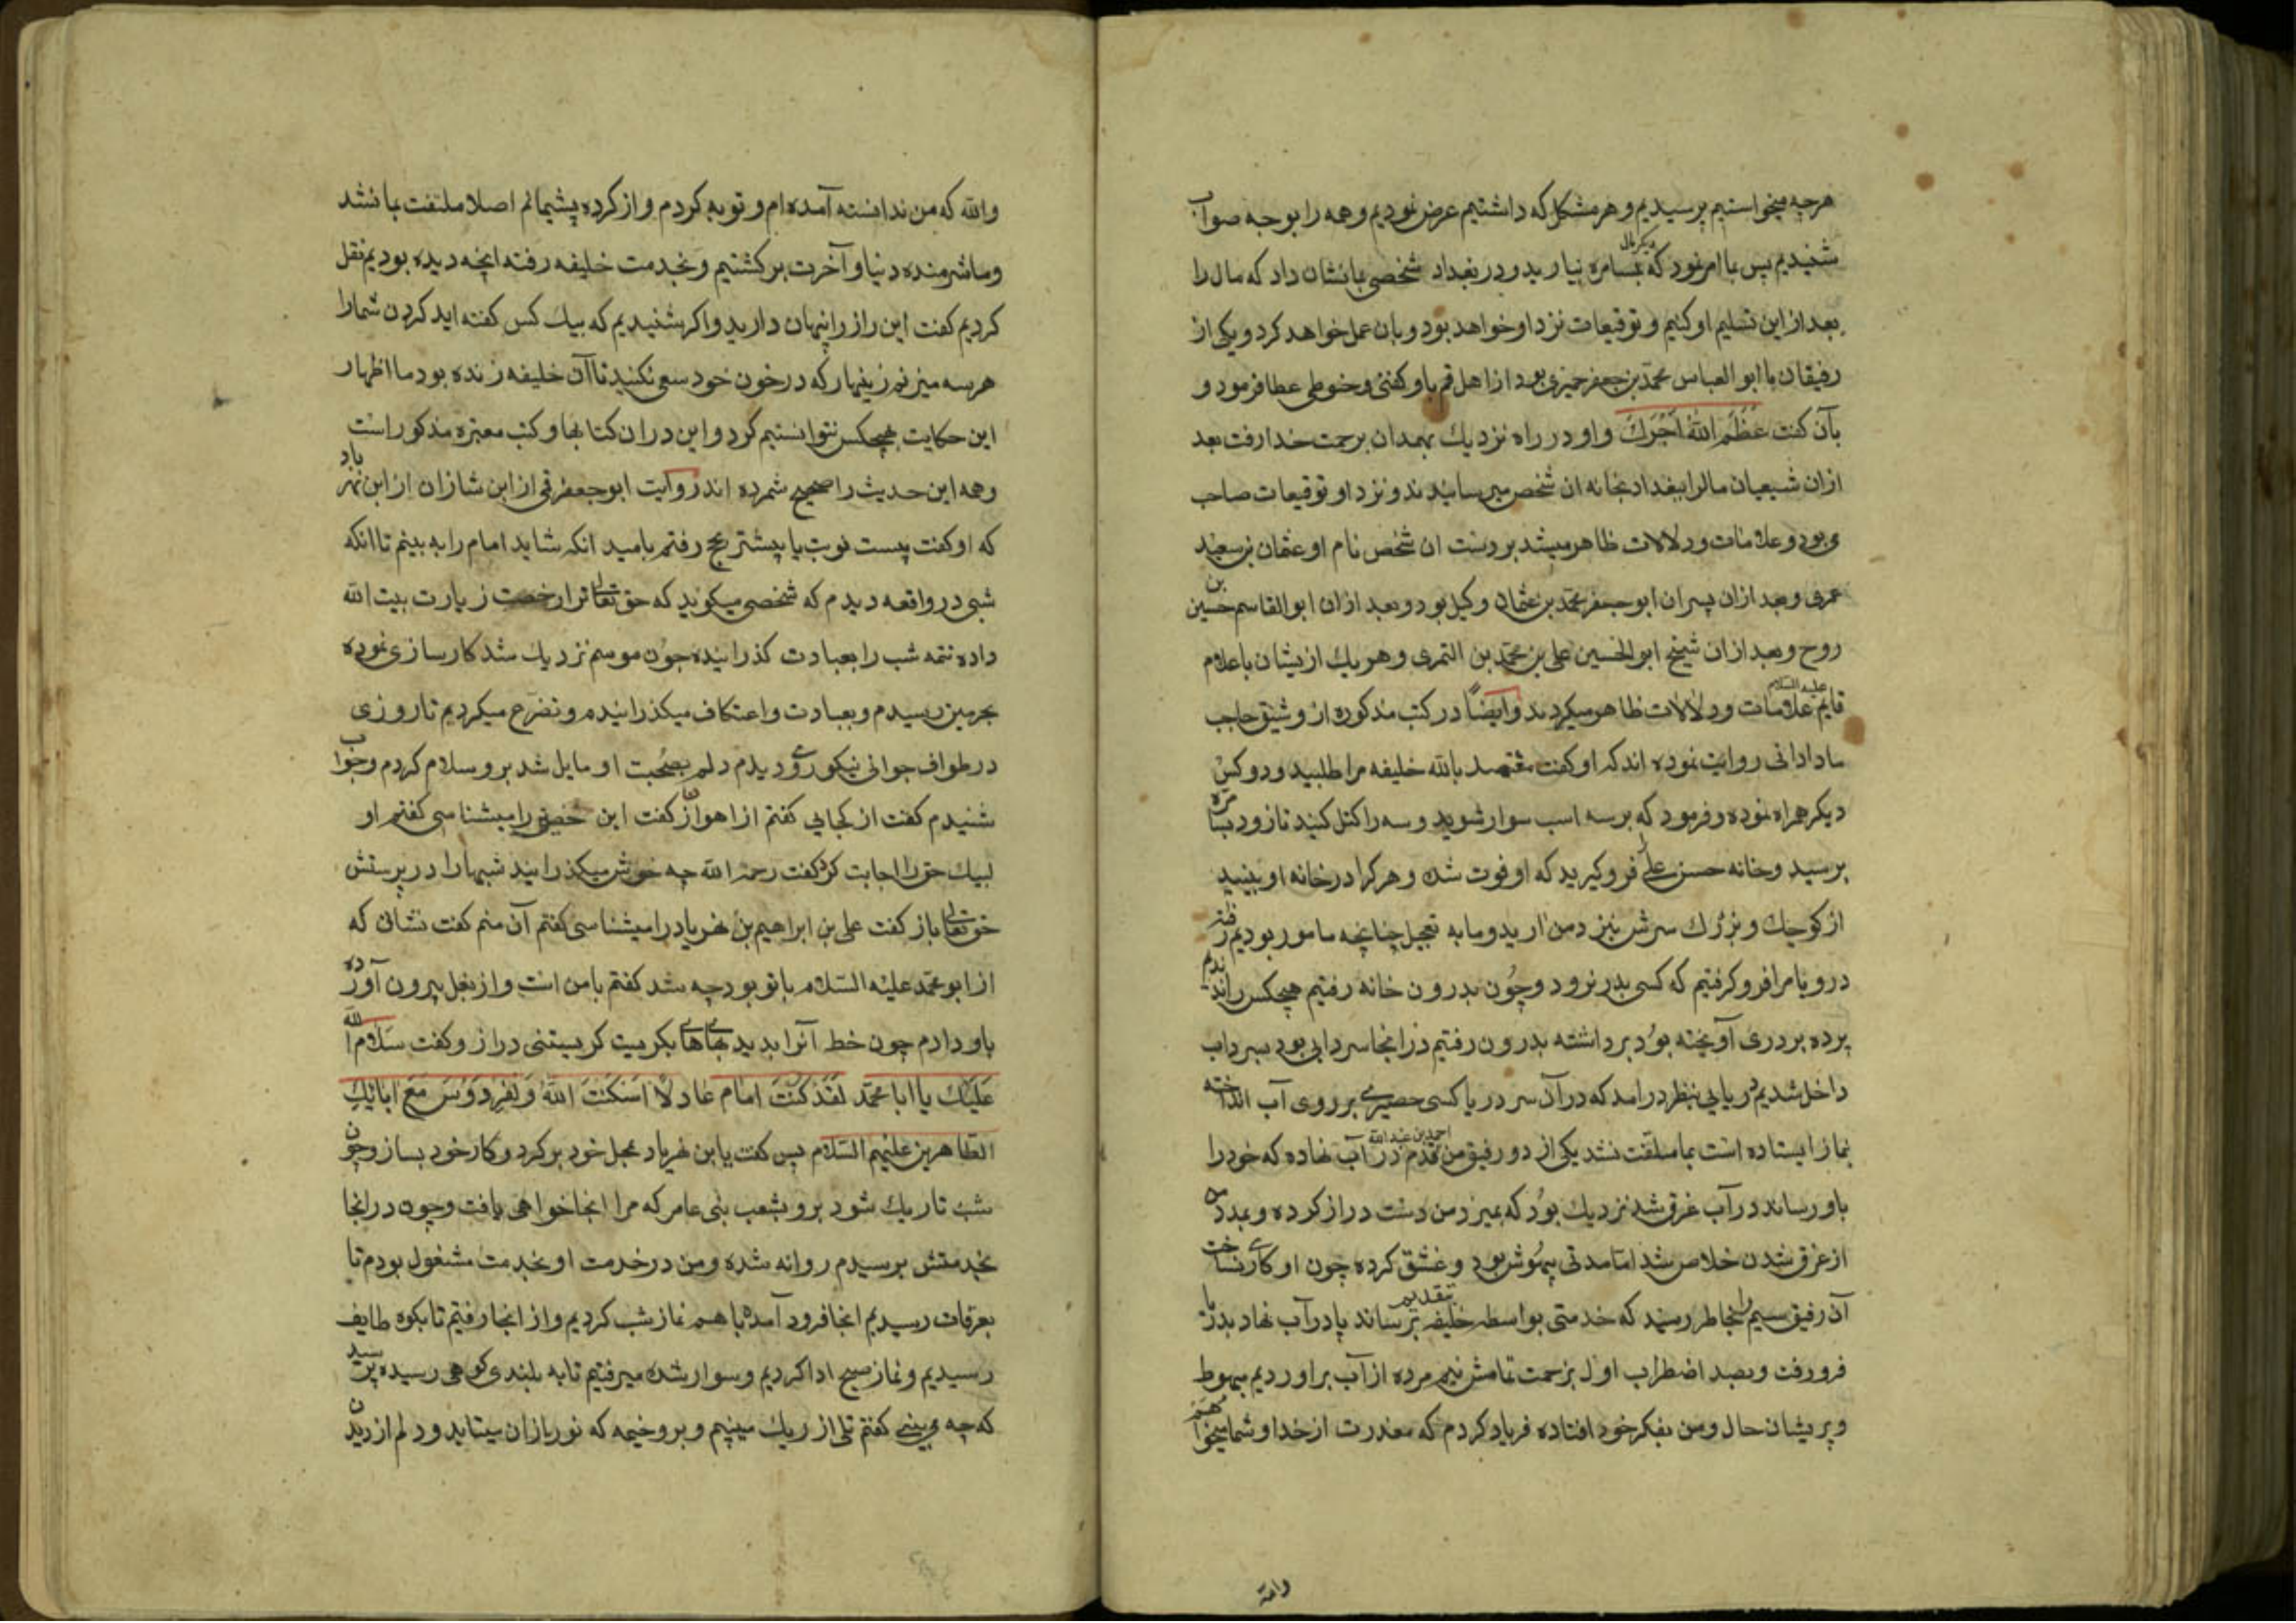 هرچه میخواستیم پرسیدیم و هر مشکل که داشتیم عرض نمودیم و همه را بوجه صواب
شنیدیم پس ما امر نمود که دیگر مال بسامره نیارید و در بغداد شخصی بانشان داد که مال را
بعد از این تسلیم او کنیم و توقیعات نزد او خواهد بود و بان عمل خواهد کرد و یکی از
رفیقان ما ابو العباس محمد بن جعفر حمیری بود از اهل قم باو کفنی و حنوطی عطا فرمود و
بآن کفت عَظَّمَ اللهُ اَجْرَكَ و او در راه نزدیك بهمدان برحمت خدا رفت بعد
ازان شیعیان مالرا ببغداد بخانه ان شخص میرسانیدند و نزد او توقیعات صاحب
می بود و علامات و دلالات ظاهر میشد بر دست ان شخص نام او عثمان بن سعید
عمری و بعد ازان پسران ابو جعفر محمد بن عثمان وکیل بود و بعد ازان ابو القاسم حسین بن
روح و بعد ازان شیخ ابو الحسین علی بن محمد بن التمری و هر یك ازیشان باعلام
قایم علیه السلام علامات و دلالات ظاهر میکردند و ایضًا در کتب مذکوره از وشیق حاجب
مادادانی روایت نموده اند که او کفت معتضد بالله خلیفه مرا طلبید و دو کس
دیکر همراه نموده و فرمود که بر سه اسب سوار شوید و سه را کتل کنید تا زود بسامره
برسید و خانه حسن علی را فرو کیرید که او فوت شده و هر کرا در خانه او ببینید
از کوچك و بزرك سرش بنزد من ارید و ما به تعجیل چنانچه مامور بودیم رفتیم
در و بام را فرو کرفتیم که کسی بدر نرود و چون بدرون خانه رفتیم هیچکس را ندیدیم
پرده بر دری آویخته بود برداشته بدرون رفتیم در انجا سردابی بود بسرداب
داخل شدیم دریایی بنظر درامد که در آن سر دریا کسی حصیری بر روی آب انداخته
نماز ایستاده است بما ملتفت نشد یکی از دو رفیق من احمد بن عبد الله قدم در آب نهاده که خود را
باو رساند در آب غرق شد نزدیك بود که بمیرد من دست دراز کرده و بمدد من
از غرق شدن خلاص شد اما مدتی بیهوش بود و غشق کرده چون او کاری نساخت
آن رفیق سیم را بخاطر رسید که خدمتی بواسطه خلیفه بتقدیم رساند پا در آب نهاد بدریا
فرو رفت و بصد اضطراب اول بزحمت تمامش نیم مرده از آب براوردیم مبهوط
و پریشان حال و من بفکر خود افتاده فریاد کردم که معذرت از خدا و شما میخواهم
والله
والله که من ندانسته آمده ام و توبه کردم و از کرده پشیمانم اصلا ملتفت با نشد
و ما شرمنده دنیا و آخرت بر کشتیم و بخدمت خلیفه رفته انچه دیده بودیم نقل
کردیم کفت این راز را پنهان دارید و اکر شنیدیم که بیك کس کفته اید کردن شما را
هر سه میزنم زینهار که در خون خود سعی نکنید تا آن خلیفه زنده بود ما اظهار
این حکایت بهیچکس نتوانستیم کرد و این در ان کتابها و کتب معتبره مذکور است
و همه این حدیث را صحیح شمرده اند روایت ابو جعفر قمی از ابن شازان از ابن مهریاد
که او کفت بیست نوبت یا بیشتر بحج رفتم بامید انکه شاید امام را به بینم تا انکه
شبی در واقعه دیدم که شخصی میکوید که حق تعالی ترا رخصت زیارت بیت الله
داده تتمه شب را بعبادت کذرانیده چون موسم نزدیك شد کارسازی نموده
بحرمین رسیدم و بعبادت و اعتکاف میکذرانیدم و تضرع میکردیم تا روزی
در طواف جوانی نیکو روی دیدم دلم بصحبت او مایل شد برو سلام کردم و جواب
شنیدم کفت از کجایی کفتم از اهواز کفت ابن خصیب را میشناسی کفتم او
لبیك حق را اجابت کرد کفت رحمة الله چه خوش میکذرانید شبها را در پرستش
حق تعالی باز کفت علی بن ابراهیم بن مهریاد را میشناسی کفتم آن منم کفت نشان که
از ابو محمد علیه السلام با تو بود چه شد کفتم با من است و از بغل بیرون آورده
باو دادم چون خط آنرا بدید های های بکریست کریستنی دراز و کفت سَلام الله
عَلَیْكَ یا ابا محمّد لَقَدْ کُنْتَ امام عادلًا اَسْکَنَكَ اللهُ وَ لفِرْدَوْسَ مَعَ ابائِكَ
الطاهرین علیهم السلام پس کفت یا بن مهریاد بمحل خود برکرد و کار خود بساز و چون
شب تاریك شود برو بشعب بنی عامر که مرا انجا خواهی یافت و چون در انجا
بخدمتش برسیدم روانه شده و من در خدمت او بخدمت مشغول بودم تا
بعرفات رسیدیم انجا فرود آمده با هم نماز شب کردیم و از انجا رفتیم تا بکوه طایف
رسیدیم و نماز صبح ادا کردیم و سوار شده میرفتیم تا به بلندی کوهی رسیده پرسید
که چه می بینی کفتم تلی از ریك میبینم و برو خیمه که نور ازان میتابد و دلم از دیدن